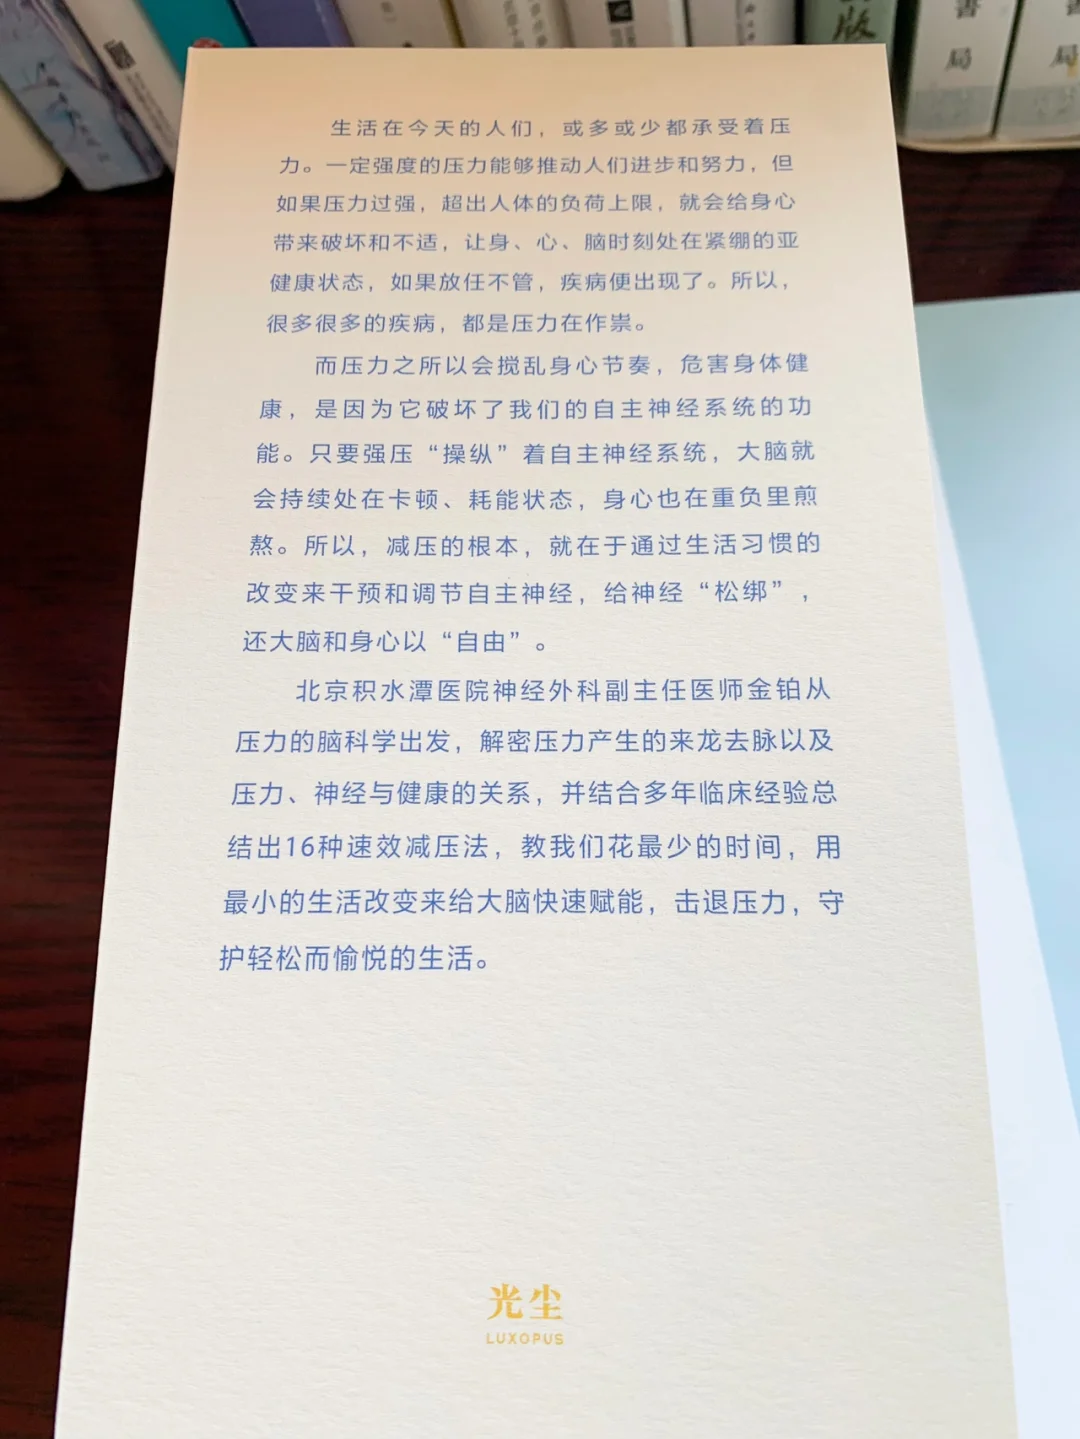 版
書
局
局
生活在今天的人们，或多或少都承受着压
力。一定强度的压力能够推动人们进步和努力，但
如果压力过强，超出人体的负荷上限，就会给身心
带来破坏和不适，让身、心、脑时刻处在紧绷的亚
健康状态，如果放任不管，疾病便出现了。所以，
很多很多的疾病，都是压力在作祟。
而压力之所以会搅乱身心节奏，危害身体健
康，是因为它破坏了我们的自主神经系统的功
能。只要强压“操纵”着自主神经系统，大脑就
会持续处在卡顿、耗能状态，身心也在重负里煎
熬。所以，减压的根本，就在于通过生活习惯的
改变来干预和调节自主神经，给神经“松绑”，
还大脑和身心以“自由”。
北京积水潭医院神经外科副主任医师金铂从
压力的脑科学出发，解密压力产生的来龙去脉以及
压力、神经与健康的关系，并结合多年临床经验总
结出16种速效减压法，教我们花最少的时间，用
最小的生活改变来给大脑快速赋能，击退压力，守
护轻松而愉悦的生活。
光尘
LUXOPUS